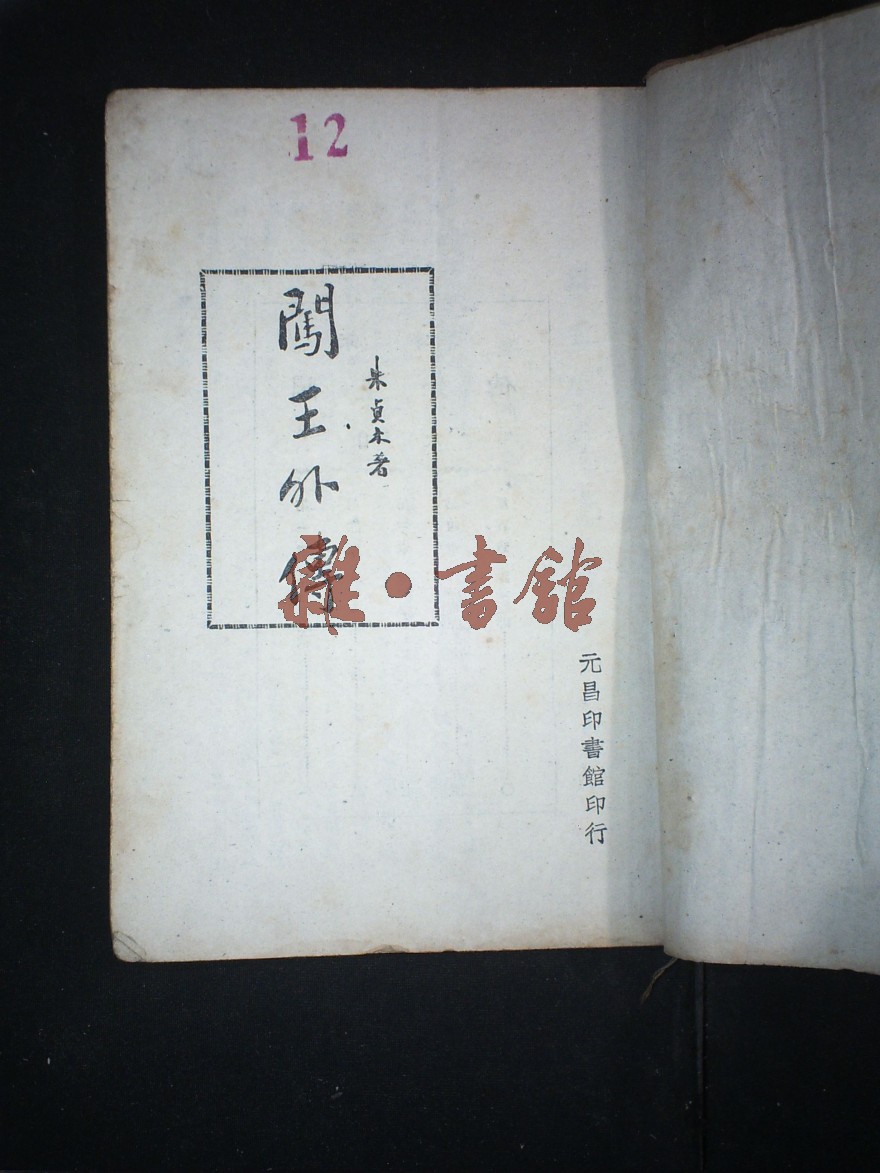 12
朱貞木著
闖王外傳
雜·書館
元昌印書館印行